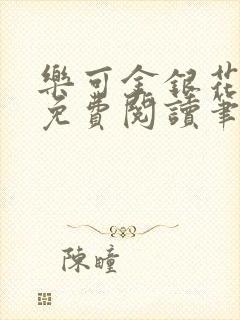 樂可金銀花
免費閱讀筆
陳瞳